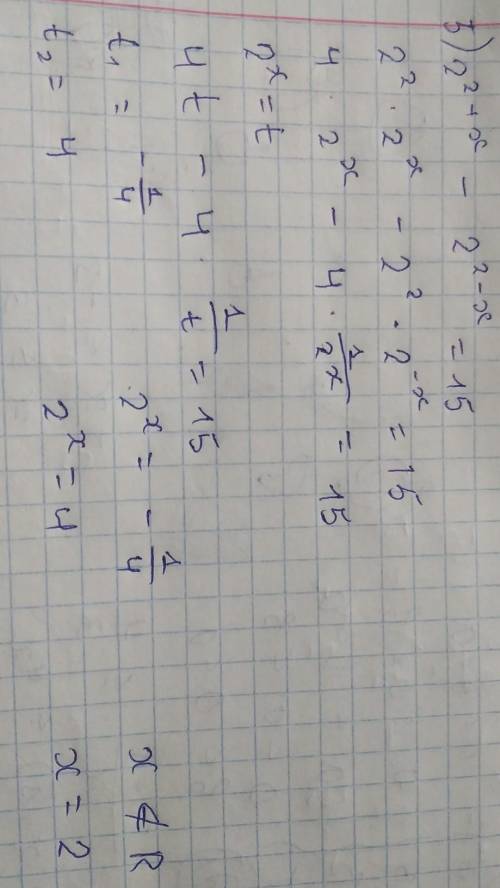 3) 2^{2+x} - 2^{2-x} = 15
2^2 · 2^x - 2^2 · 2^{-x} = 15
4 · 2^x - 4 · \frac{1}{2^x} = 15
2^x = t
4t - 4 · \frac{1}{t} = 15
t_1 = -\frac{1}{4} 2^x = -\frac{1}{4} x ∉ R
t_2 = 4 2^x = 4 x = 2